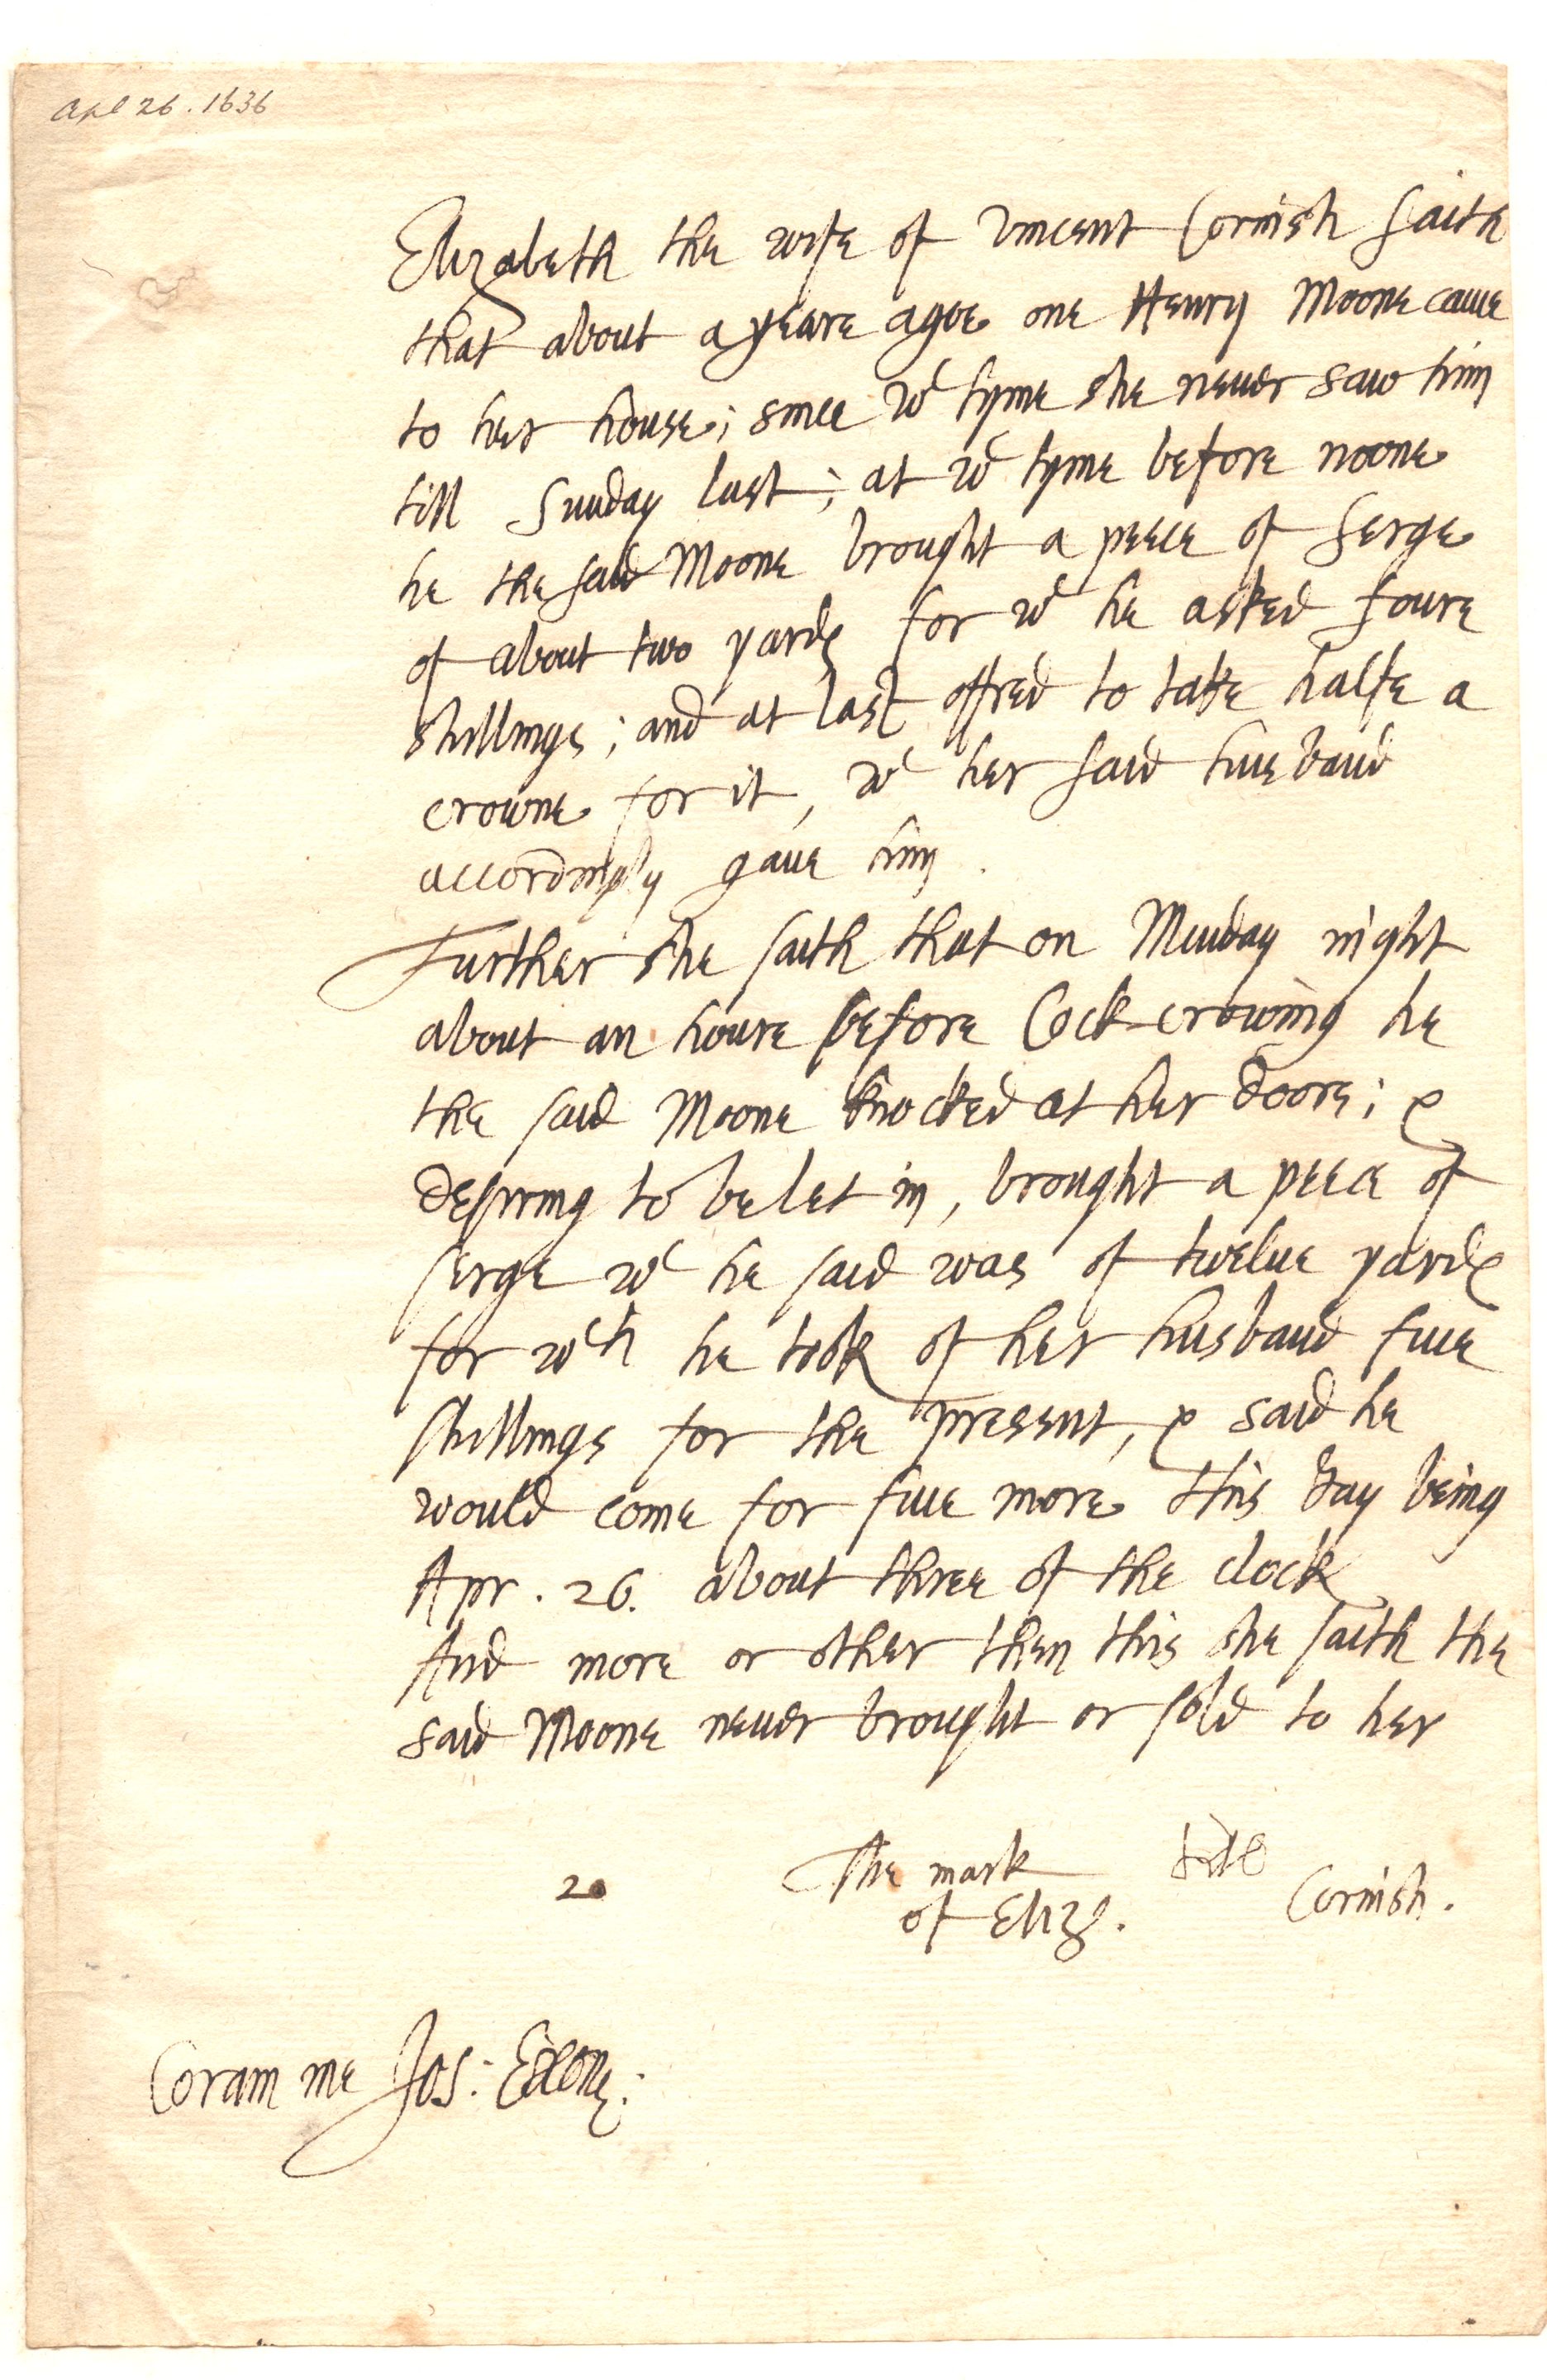 Apl 26. 1636
Elizabeth the wife of Vincent Cornish saith
that about a yeare agoe one Henry Moone came
to her house; since wch tyme she never saw him
till Sunday last; at wch tyme before noone
he the said Moone brought a peece of serge
of about two yards for wch he asked foure
shillings; and at last offred to take halfe a
crowne for it, wch her said husband
accordingly gaue him.
Further she saith that on Munday night
about an houre before Cock-crowing he
the said Moone knocked at her doore; &
desyring to be let in, brought a peece of
serge wch he said was of twelue yards
for wch he took of her husband fiue
shillings for the present, & said he
would come for fiue more this day being
Apr. 26. about three of the clock
And more or other then this she saith the
said Moone neuer brought or sold to her
20 The mark
of Eliz. Cornish.
Coram me Jos: Exon: